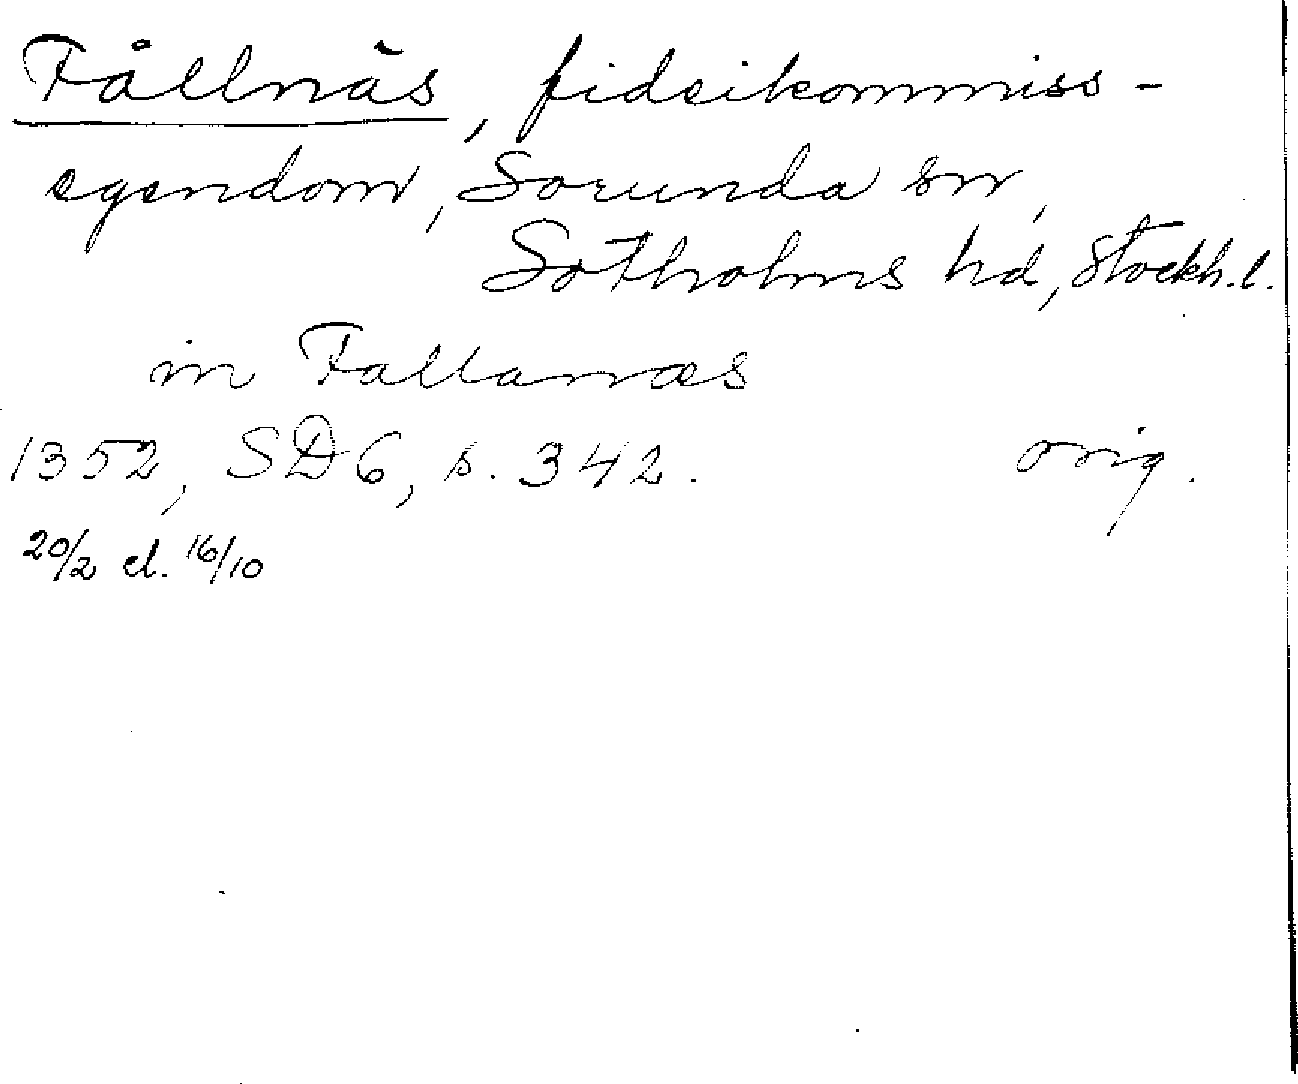 Fållnäs, fideikommiss-
egendom, Sorunda sn,
Sotholms hd, Stockh.l.
in Fallanæs
1352, SD6, s. 342. orig.
20/2 el. 16/10